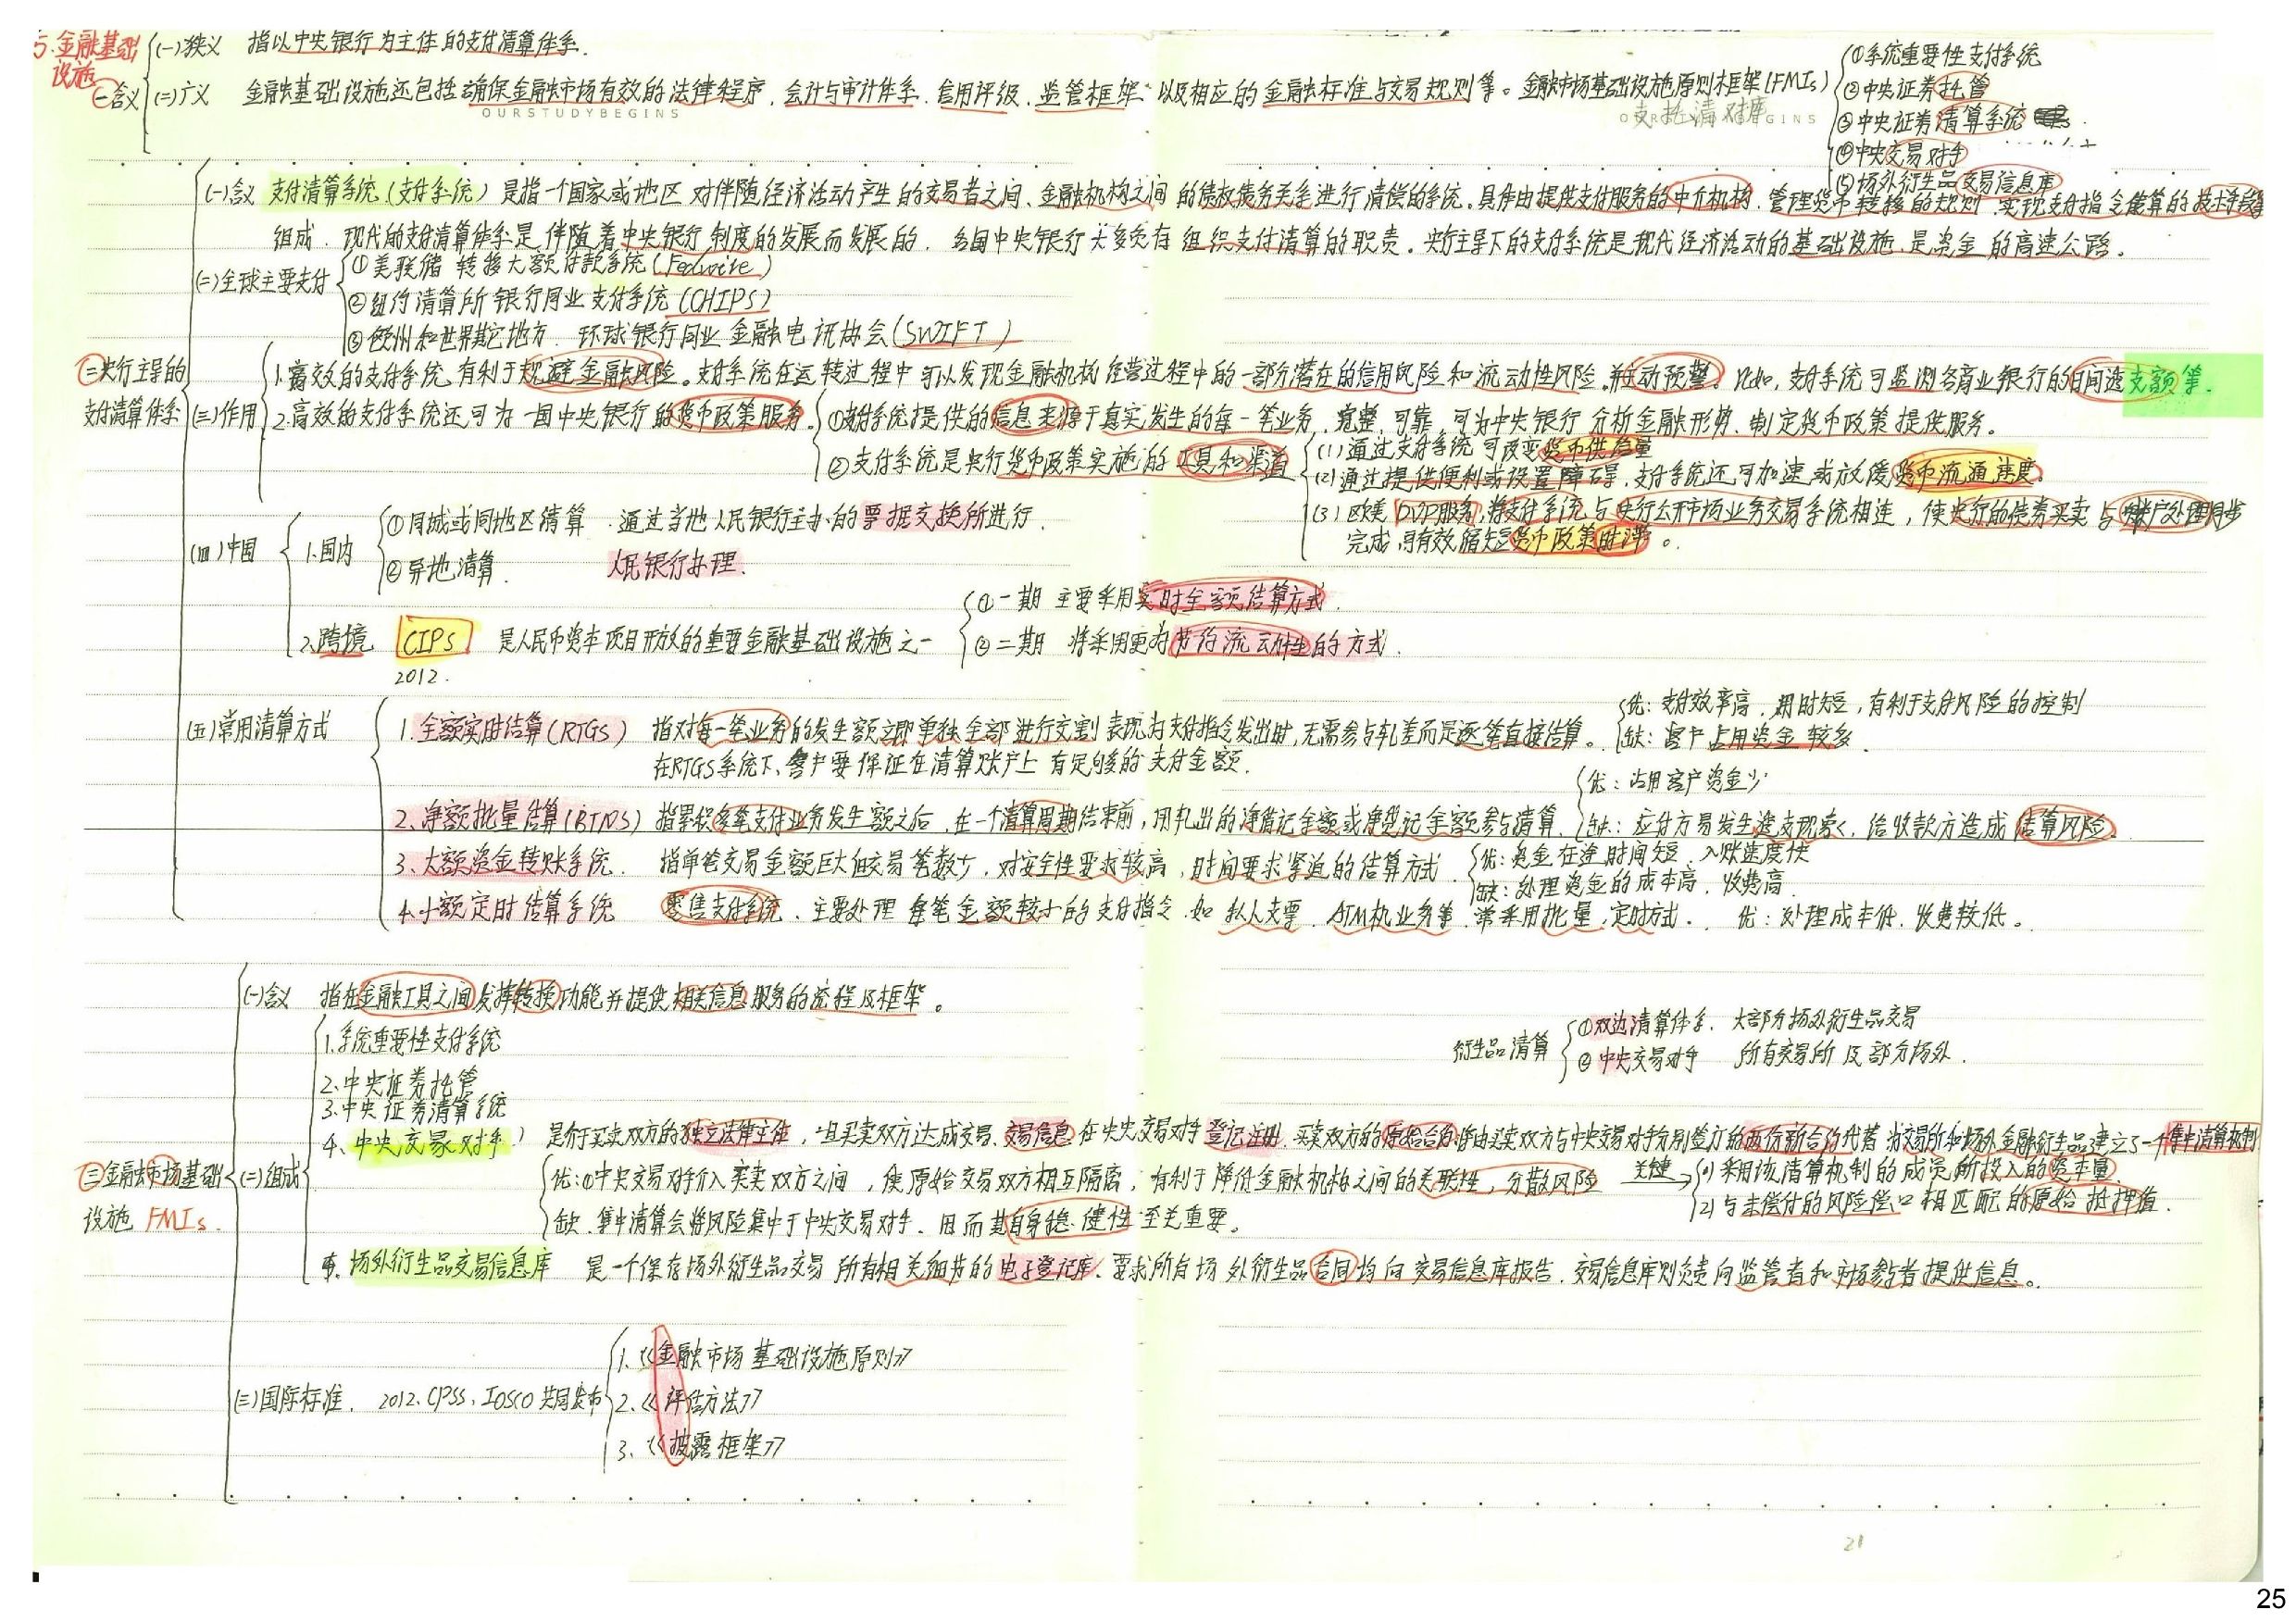 5.金融基础设施
一含义
(一)狭义 指以中央银行为主体的支付清算体系.
(二)广义 金融基础设施还包括确保金融市场有效的法律程序,会计与审计体系.信用评级.监管框架 以及相应的金融标准与交易规则等。金融市场基础设施原则框架(FMIs)
①系统重要性支付系统
②中央证券托管
③中央证券清算系统
④中央交易对手
⑤场外衍生品交易信息库
OURSTUDYBEGINS
支托清对库
二央行主导的支付清算体系
(一)含义 支付清算系统(支付系统)是指一个国家或地区对伴随经济活动产生的交易者之间、金融机构之间的债权债务关系进行清偿的系统。具体由提供支付服务的中介机构.管理货币转移的规则.实现支付指令
组成.现代的支付清算体系是伴随着中央银行制度的发展而发展的.各国中央银行大多负有组织支付清算的职责。央行主导下的支付系统是现代经济活动的基础设施.是资金的高速公路。
(二)全球主要支付
①美联储 转移大额付款系统(Fedwire)
②纽约清算所银行同业支付系统(CHIPS)
③欧州和世界其它地方.环球银行同业金融电讯协会(SWIFT)
(三)作用
1.高效的支付系统.有利于规避金融风险。支付系统在运转过程中可以发现金融机构经营过程中的一部分潜在的信用风险和流动性风险.并自动预警。此外,支付系统可监测各商业银行的日间透支额等.
2.高效的支付系统还可为一国中央银行的货币政策服务。
①支付系统提供的信息来源于真实发生的每一笔业务.完整.可靠.可为中央银行分析金融形势.制定货币政策提供服务。
②支付系统是央行货币政策实施的工具和渠道
(1)通过支付系统可改变货币供给量
(2)通过提供便利或设置障碍,支付系统还可加速或放缓货币流通速度.
(3)欧美DVP服务,将支付系统与央行公开市场业务交易系统相连,使央行的债券买卖与账户处理同步
完成,可有效缩短货币政策时滞。
(四)中国
1.国内
①同城或同地区清算.通过当地人民银行主办的票据交换所进行.
②异地清算. 人民银行办理.
2.跨境 CIPS 是人民币资本项目开放的重要金融基础设施之一
2012.
①一期 主要采用实时全额结算方式.
②二期 将采用更为节约流动性的方式.
(五)常用清算方式
1.全额实时结算(RTGS) 指对每一笔业务的发生额立即单独全部进行交割 表现为支付指令发出时,无需参与轧差而是逐笔直接结算。
在RTGS系统下、客户要保证在清算账户上有足够的支付金额.
优:支付效率高.用时短,有利于支付风险的控制
缺:客户占用资金较多.
2、净额批量结算(BTNS) 指累积多笔支付业务发生额之后.在一个清算周期结束前,用轧出的净借记金额或净贷记金额参与清算.
优:占用客户资金少
缺:应付方易发生透支现象,给收款方造成结算风险.
3、大额资金转账系统. 指单笔交易金额巨大但交易笔数少,对安全性要求较高,时间要求紧迫的结算方式.
优:资金在途时间短.入账速度快
缺:处理资金的成本高.收费高.
4.小额定时结算系统 零售支付系统.主要处理每笔金额较小的支付指令.如私人支票.ATM机业务等.常采用批量,定时方式. 优:处理成本低.收费较低。
三金融市场基础设施 FMIs.
(一)含义 指在金融工具之间发挥转换功能并提供相关信息服务的流程及框架。
(二)组成
1.系统重要性支付系统
2.中央证券托管
3.中央证券清算系统
衍生品清算
①双边清算体系.大部分场外衍生品交易
②中央交易对手 所有交易所及部分场外.
4、中央交易对手) 是介于买卖双方的独立法律主体,当买卖双方达成交易、交易信息在中央交易对手登记注册.买卖双方的原始合约将由买卖双方与中央交易对手分别签订的两份新合约代替.为交易所和场外金融衍生品建立了一个集中清算机制
优:①中央交易对手介入买卖双方之间,使原始交易双方相互隔离,有利于降低金融机构之间的关联性,分散风险
缺.集中清算会将风险集中于中央交易对手.因而其自身稳健性至关重要。
关键→ (1)采用该清算机制的成员所投入的资本量.
(2)与未偿付的风险敞口相匹配的原始抵押值.
5、场外衍生品交易信息库 是一个保存场外衍生品交易所有相关细节的电子登记库.要求所有场外衍生品合同均向交易信息库报告.交易信息库则负责向监管者和市场参与者提供信息。
(三)国际标准. 2012.CPSS、IOSCO共同发布
1.《金融市场基础设施原则》
2.《评估方法》
3、《披露框架》
21
25